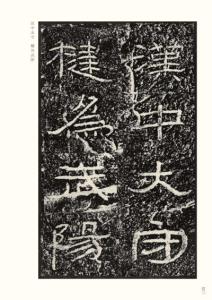 漢中大守
楗為武陽